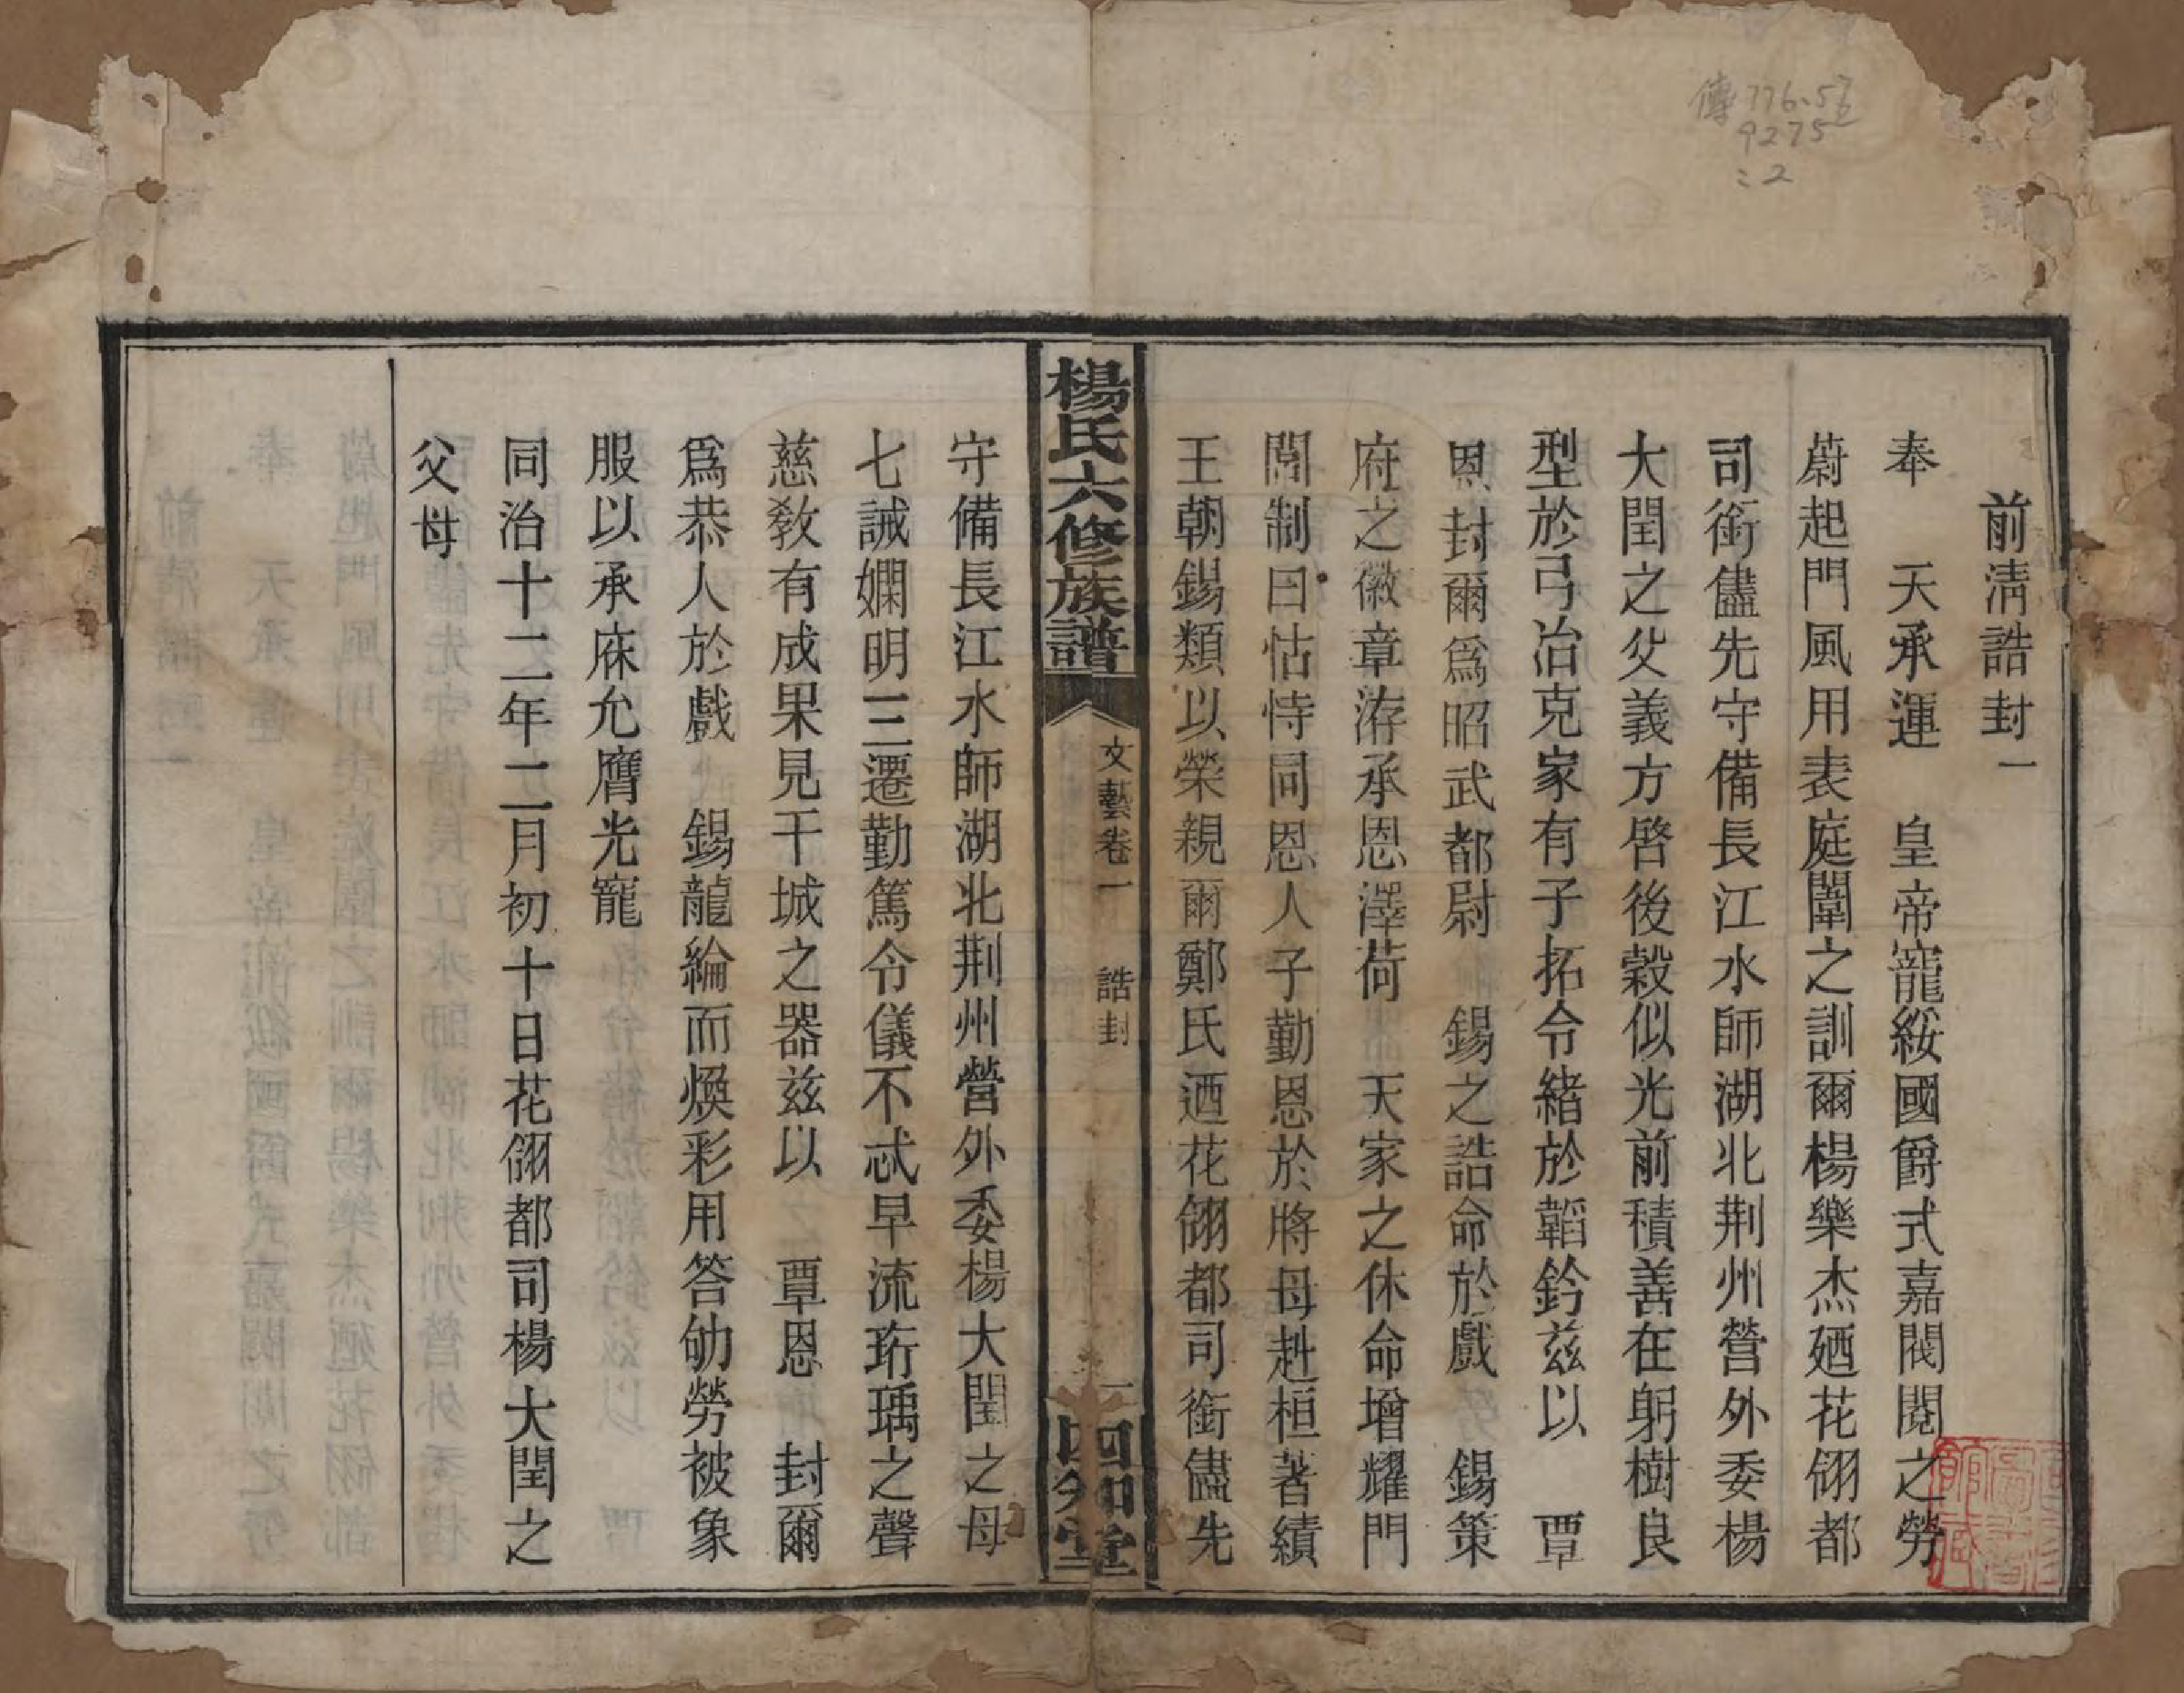 傳 776.52
9275
:2
前清誥封一
奉　天承運　皇帝寵綏國爵式嘉閥閱之勞
蔚起門風用表庭闈之訓爾楊樂杰廼花翎都
司銜儘先守備長江水師湖北荆州營外委楊
大閏之父義方啓後穀似光前積善在躬樹良
型於弓冶克家有子拓令緖於韜鈐兹以　覃
恩封爾爲昭武都尉　錫之誥命於戲　錫策
府之徽章洊承恩澤荷　天家之休命增耀門
閭制曰怙恃同恩人子勤恩於將母赳桓著績
王朝錫類以榮親爾鄭氏廼花翎都司銜儘先
楊氏六修族譜
文藝卷一　誥封
一
四知堂
守備長江水師湖北荆州營外委楊大閏之母
七誡嫻明三遷勤篤令儀不忒早流珩瑀之聲
慈敎有成果見干城之器兹以　覃恩　封爾
爲恭人於戲　錫龍綸而煥彩用答劬勞被象
服以承庥允膺光寵
同治十二年二月初十日花翎都司楊大閏之
父母